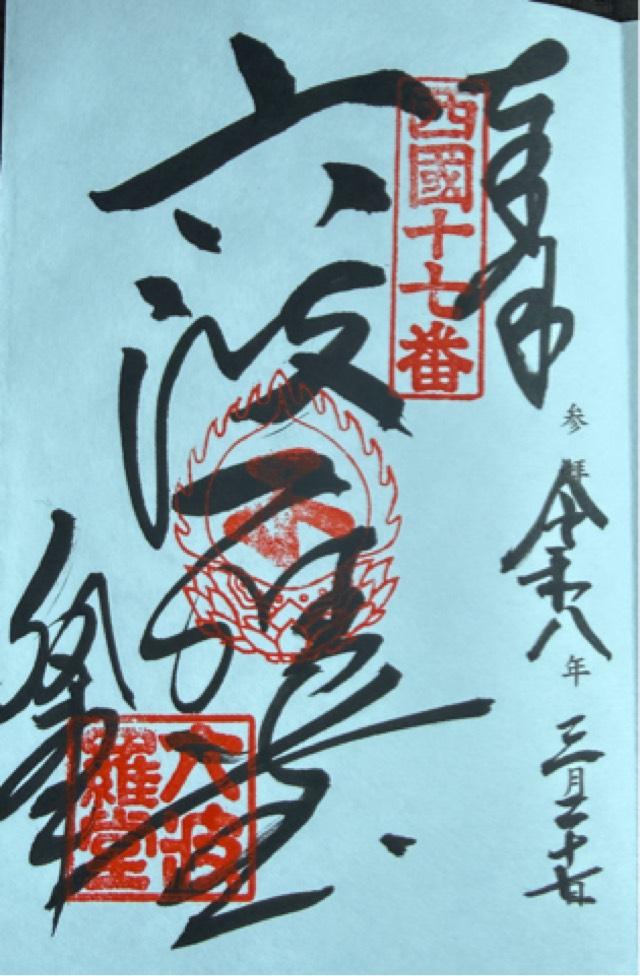 奉拝
西國十七番
参拝
令和八年三月二十七日
六波羅堂
六波
羅堂